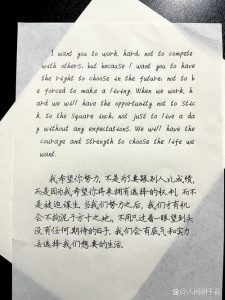 I want you to work hard, not to compete
with others, but because I want you to have
the right to choose in the future, not to b
e forced to make a living. When we work h
ard we will have the opportunity not to stic
k to the square inch, not just to live a da
y without any expectations. We will have the
courage and strength to choose the life we
want.
我希望你努力,不是为了要跟别人比成绩,
而是因为我希望你将来拥有选择的权利,而不
是被迫谋生,当我们努力之后,我们才有机
会不拘泥于方寸之地,不用只过着一眼望到头
没有任何期待的日子,我们会有底气和实力
去选择我们想要的生活。